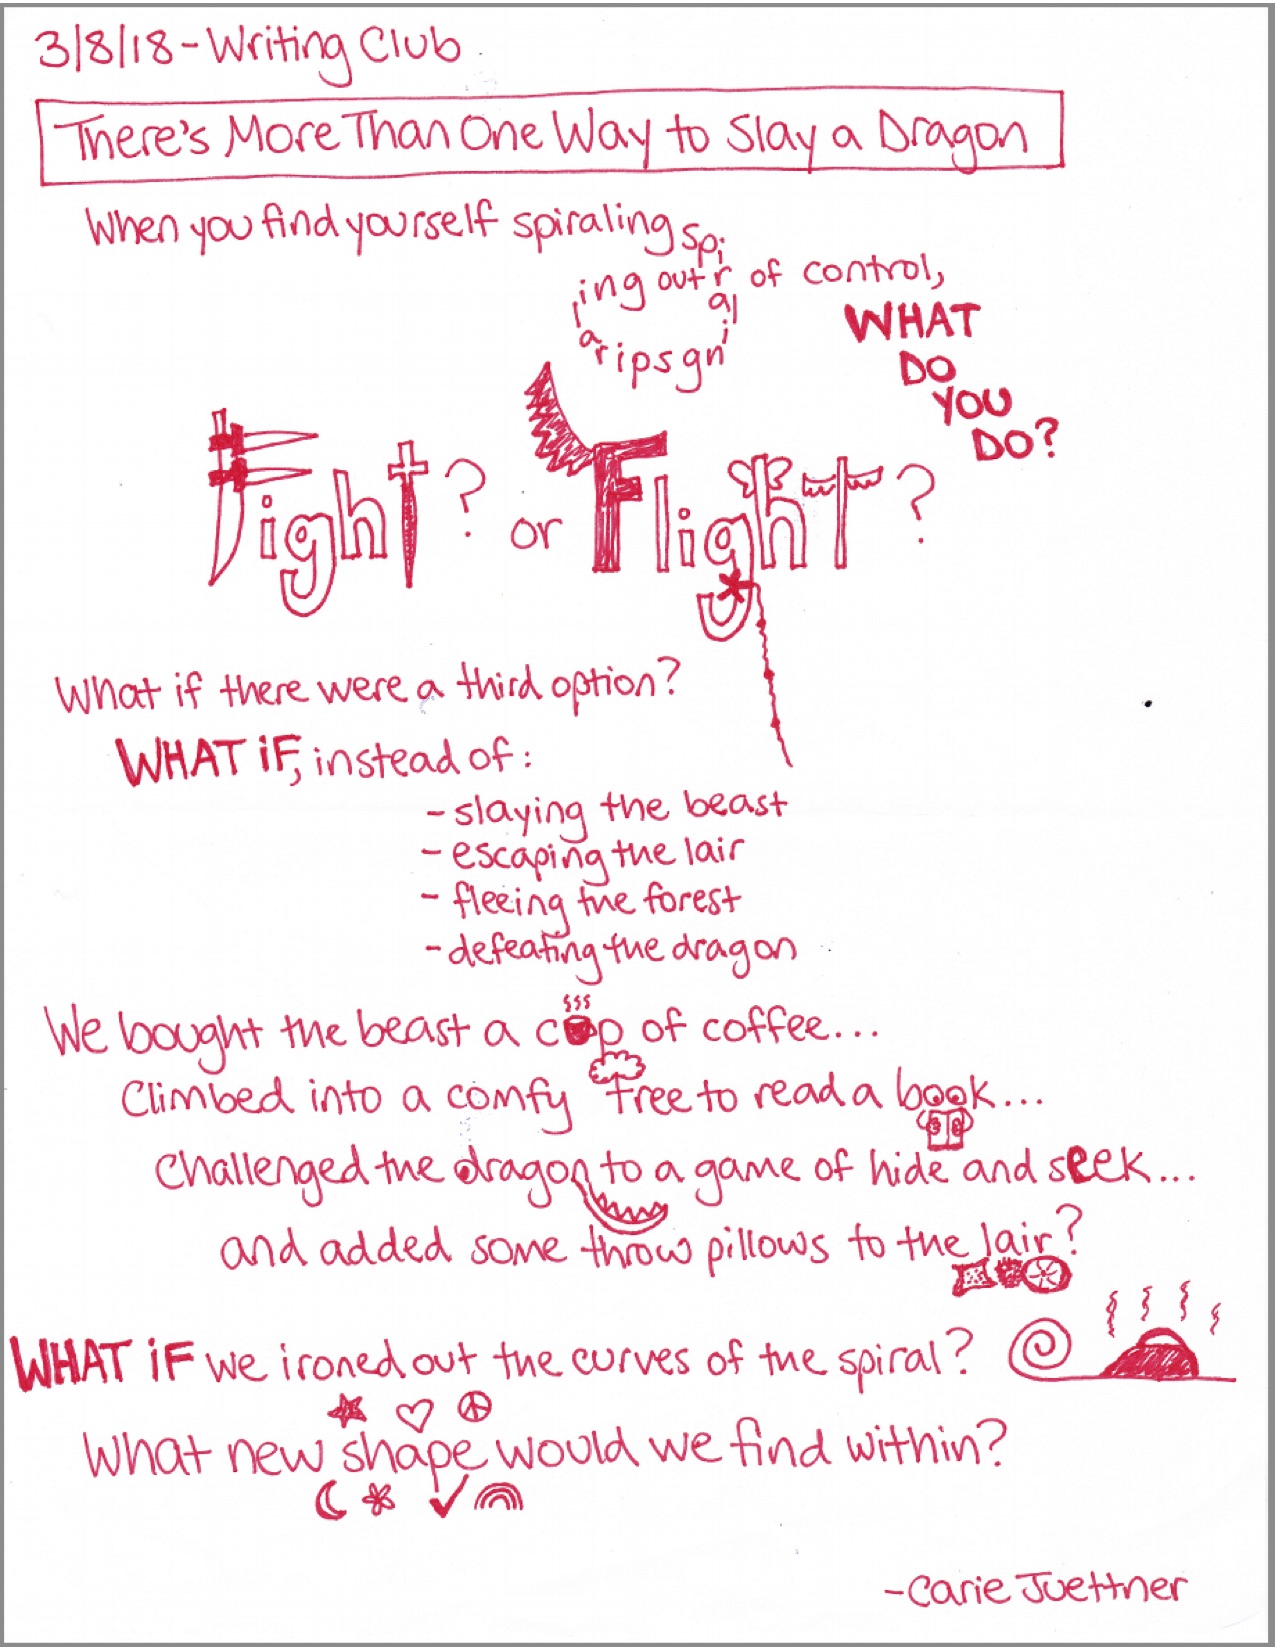 3/8/18 - Writing Club
There's More Than One Way to Slay a Dragon
When you find yourself spiraling spiraling spiraling out of control,
WHAT
DO
YOU
DO?
Fight? or Flight?
What if there were a third option?
WHAT iF, instead of:
- slaying the beast
- escaping the lair
- fleeing the forest
- defeating the dragon
We bought the beast a cup of coffee...
Climbed into a comfy tree to read a book...
Challenged the dragon to a game of hide and seek...
and added some throw pillows to the lair?
WHAT iF we ironed out the curves of the spiral?
What new shape would we find within?
- Carie Juettner